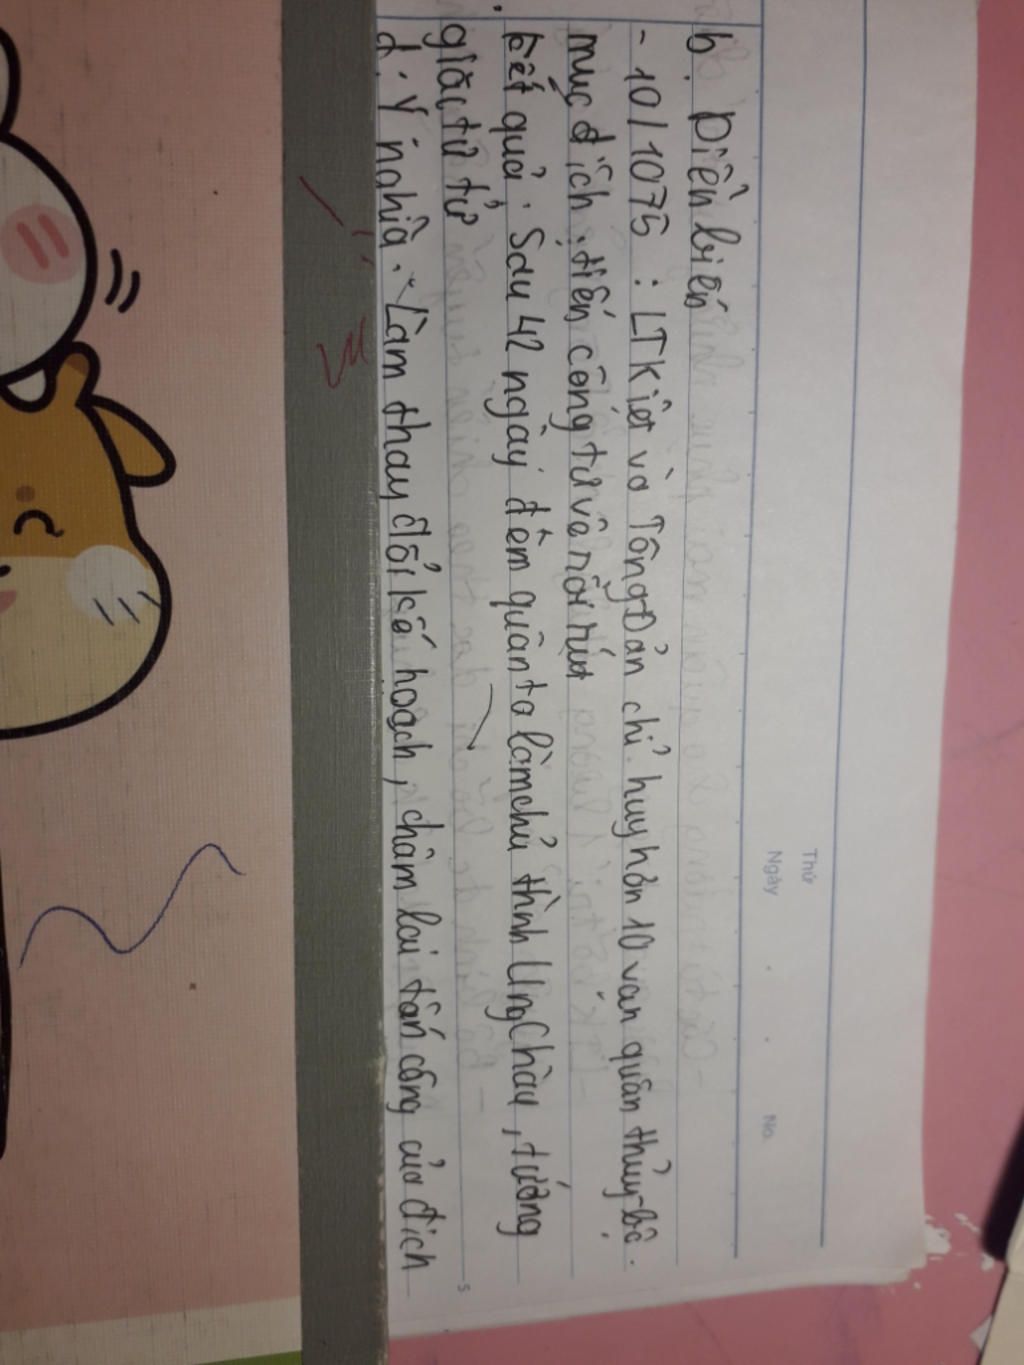 Thứ
Ngày . . No.
b. Diễn biến
- 10/1075 : LTKiệt và Tông Đản chỉ huy hơn 10 vạn quân thủy-bộ.
mục đích: tiến công tự vệ rồi rút
kết quả: Sau 42 ngày đêm quân ta làm chủ thành Ung Châu, tướng
giặc tự tử
d. Ý nghĩa. Làm thay đổi kế hoạch, chậm lại tấn công của địch
5